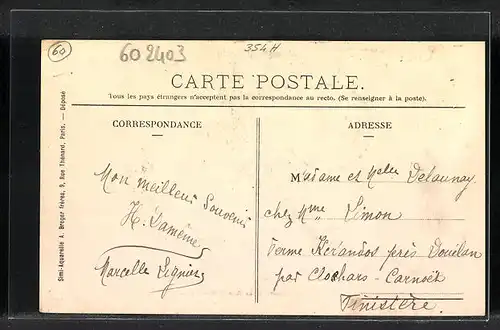 60
602403
354 H
CARTE POSTALE.
Tous les pays étrangers n'acceptent pas la correspondance au recto. (Se renseigner à la poste).
CORRESPONDANCE
Mon meilleur Souvenir
H. Lamême
Marcelle Legnier
ADRESSE
Madame et Melle Delaunay
chez Mme Limon
ferme Kerandos près Douëlan
par Clohars-Carnoët
Finistère.
Simi-Aquarelle A. Breger frères, 9, Rue Thénard, Paris. — Déposé